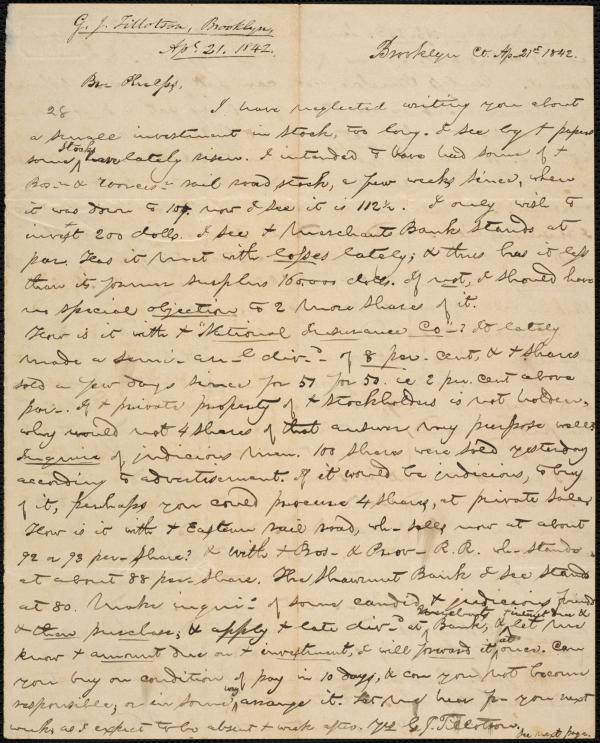 G. J. Tillotson, Brooklyn,
Apr. 21. 1842.
Brooklyn Ct. Ap. 21st 1842.
Bro Phelps,
28
I have neglected writing you about
a small investment in stock, too long. I see by + papers
some stocks have lately risen. I intended to have had some of +
Bos- & Worces- rail road stock, a few weeks since, when
it was down to 107. now I see it is 112½. I only wish to
invest 200 dolls. I see + Merchant Bank stands at
par. Has it met with losses lately; & thus has it less
than its former surplus 160.000 dolls. If not, I should have
no special objection to 2 more shares of it.
How is it with + "National Insurance Co"? It lately
made a semi-an-l div-d of 8 per. cent, & + shares
sold a few days since for 51 for 50. ie 2 per. cent above
par-. If + private property of + stockholders is not holden,
why would not 4 shares of that answer my purpose well?
Inquire of judicious men. 100 shares were sold yesterday
according to advertisement. If it would be judicious, to buy
of it, perhaps you could procure 4 shares, at private sale.
How is it with + Eastern rail road, wh- sells now at about
92 or 93 per- share? & with + Bos- & Prov- R. R. wh- stands
at about 88 per- share. The Shawmut Bank I see stands
at 80. Make inqui- of some candid, & judicious friend
& then purchase; & apply + late div-d at Merchants Bank, & interest due & let me
know + amount due on + investment, I will forward it at once. Can
you buy on condition of pay in 10 days, & can you not become
responsible, or in some way arrange it. Let me hear fr- you next
week, as I expect to be absent + week after. Yrs G. J. Tillotson,
See next page.